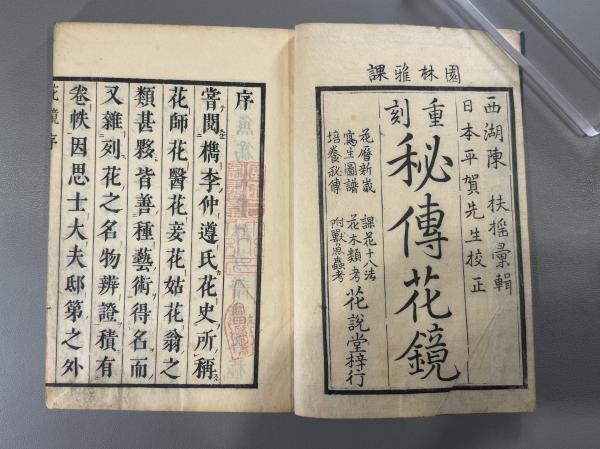 園林雅課
西湖陳 扶搖彙輯
日本平賀先生校正
重刻
秘傳花鏡
花曆新栽 課花十八法
寫生圖譜 花木類考
培養秘傳 附獸魚蟲考
花說堂梓行
序
嘗閱檇李仲遵氏花史所稱
花師花醫花妾花姑花翁之
類甚夥皆善種藝術得名而
又雜列花之名物辨證積有
卷帙因思士大夫邸第之外
花鏡序